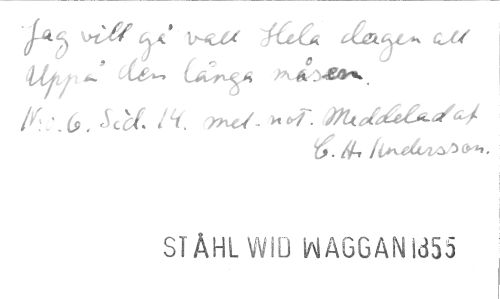 Jag vill gå vall Hela dagen all
Uppå den långa måsen.
No. 6. Sid. 14. mel. not. Meddelad af
C. H. Andersson.
STÅHL WID WAGGAN 1855